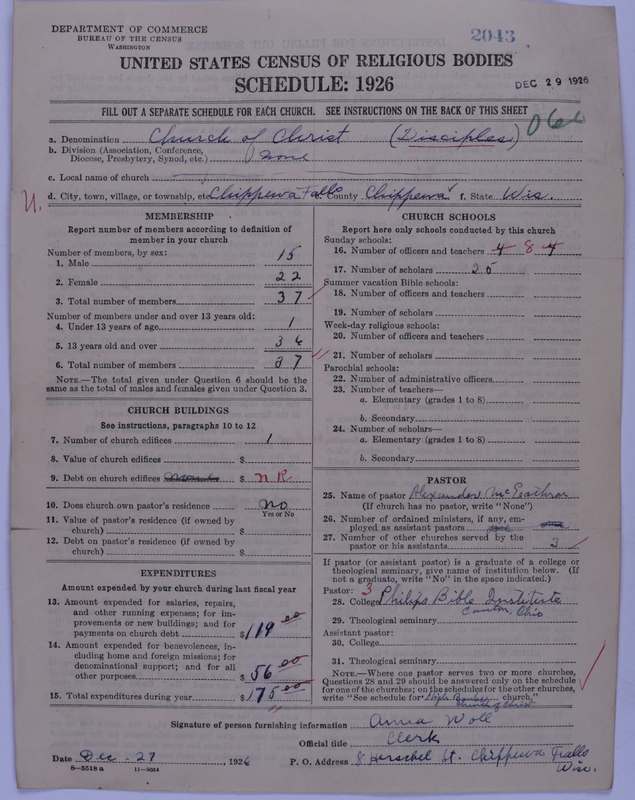 DEPARTMENT OF COMMERCE
BUREAU OF THE CENSUS
WASHINGTON
2043
UNITED STATES CENSUS OF RELIGIOUS BODIES
SCHEDULE: 1926
DEC 29 1926
FILL OUT A SEPARATE SCHEDULE FOR EACH CHURCH. SEE INSTRUCTIONS ON THE BACK OF THIS SHEET
a. Denomination Church of Christ (Disciples) 066
b. Division (Association, Conference,
Diocese, Presbytery, Synod, etc.) None
c. Local name of church
U. d. City, town, village, or township, etc. Chippewa Falls e. County Chippewa f. State Wis.
MEMBERSHIP
Report number of members according to definition of
member in your church
Number of members, by sex:
1. Male 15
2. Female 22
3. Total number of members 37
Number of members under and over 13 years old:
4. Under 13 years of age 1
5. 13 years old and over 36
6. Total number of members 37
NOTE.—The total given under Question 6 should be the
same as the total of males and females given under Question 3.
CHURCH BUILDINGS
See instructions, paragraphs 10 to 12
7. Number of church edifices 1
8. Value of church edifices $
9. Debt on church edifices None $ NR
10. Does church own pastor's residence No
Yes or No
11. Value of pastor's residence (if owned by
church) $
12. Debt on pastor's residence (if owned by
church) $
EXPENDITURES
Amount expended by your church during last fiscal year
13. Amount expended for salaries, repairs,
and other running expenses; for im-
provements or new buildings; and for
payments on church debt $ 119 00
14. Amount expended for benevolences, in-
cluding home and foreign missions; for
denominational support; and for all
other purposes $ 56 00
15. Total expenditures during year $ 175 00
CHURCH SCHOOLS
Report here only schools conducted by this church
Sunday schools:
16. Number of officers and teachers 4 8 4
17. Number of scholars 25
Summer vacation Bible schools:
18. Number of officers and teachers
19. Number of scholars
Week-day religious schools:
20. Number of officers and teachers
21. Number of scholars
Parochial schools:
22. Number of administrative officers
23. Number of teachers—
a. Elementary (grades 1 to 8)
b. Secondary
24. Number of scholars—
a. Elementary (grades 1 to 8)
b. Secondary
PASTOR
25. Name of pastor Alexander McEachron
(If church has no pastor, write "None")
26. Number of ordained ministers, if any, em-
ployed as assistant pastors
27. Number of other churches served by the
pastor or his assistants 3
If pastor (or assistant pastor) is a graduate of a college or
theological seminary, give name of institution below. (If
not a graduate, write "No" in the space indicated.)
Pastor: 3
28. College Philips Bible Institute
Canton, Ohio
29. Theological seminary
Assistant pastor:
30. College
31. Theological seminary
NOTE.—Where one pastor serves two or more churches,
Questions 28 and 29 should be answered only on the schedule
for one of the churches; on the schedules for the other churches,
write "See schedule for church."
Church of Christ
Signature of person furnishing information Anna Woll
Official title Clerk
Date Dec. 27, 1926 P. O. Address 8 Herschel St. Chippewa Falls
Wis.
8—5518a 11—9054